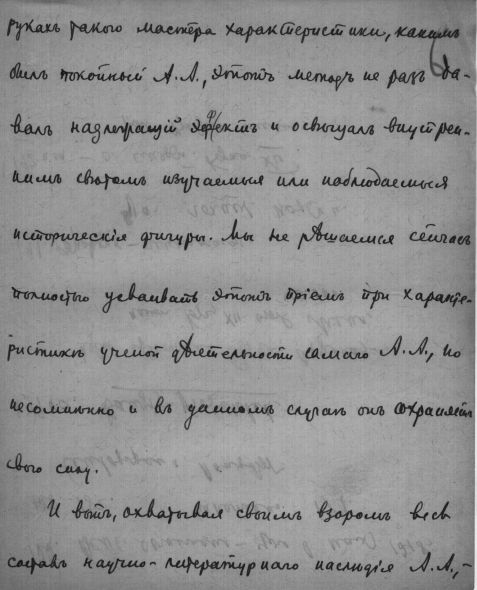 рукахъ такого мастера характеристики, какимъ
былъ покойный А.А., этотъ методъ не разъ да-
валъ надлежащій эффектъ и освѣщалъ внутрен-
нимъ свѣтомъ изучаемыя или наблюдаемыя
историческія фигуры. Мы не рѣшаемся сейчасъ
полностью усваивать этотъ пріемъ при характе-
ристикѣ ученой дѣятельности самаго А.А., но
несомнѣнно и въ данномъ случаѣ онъ сохраняетъ
свою силу.
И вотъ, охватывая своимъ взоромъ весь
составъ научно-литературнаго наслѣдія А.А.,-